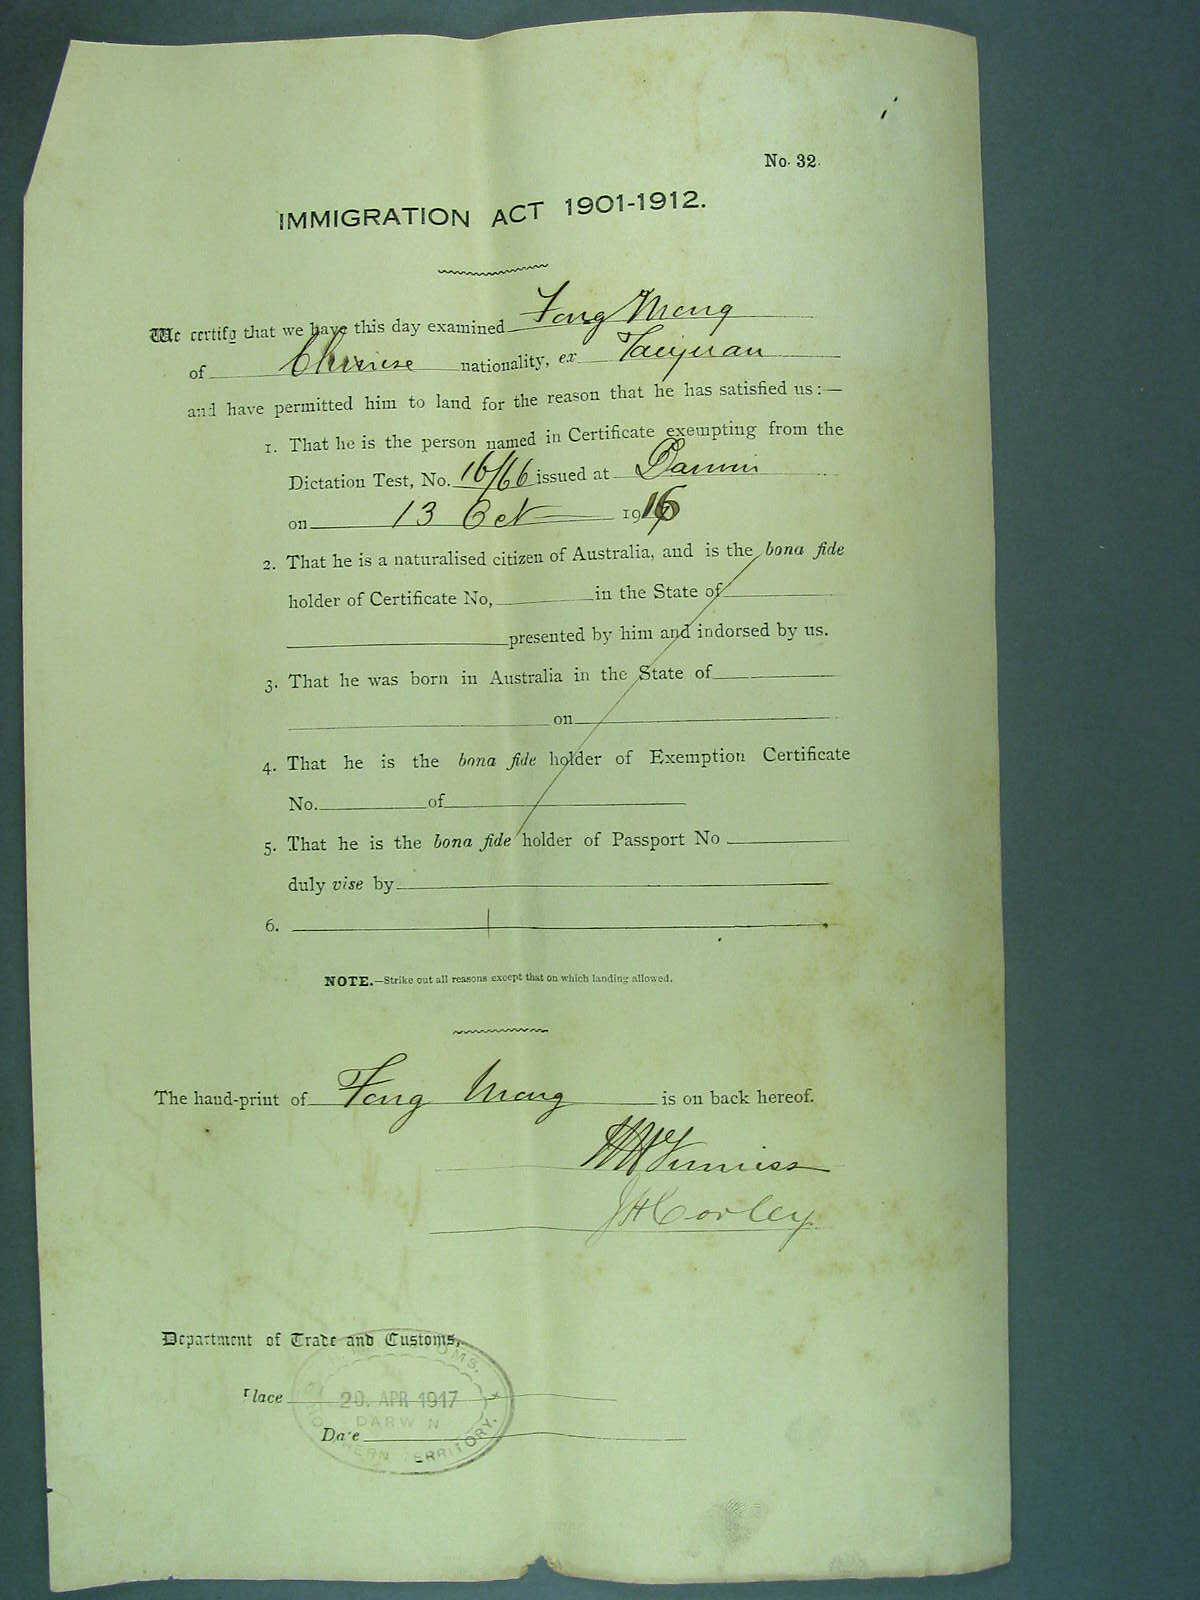 No. 32.
IMMIGRATION ACT 1901-1912.
We certify that we have this day examined Fong Mong
of Chinese nationality, ex Taiyuan
and have permitted him to land for the reason that he has satisfied us:—
1. That he is the person named in Certificate exempting from the
Dictation Test, No. 16/66 issued at Darwin
on 13 Oct 1916
2. That he is a naturalised citizen of Australia, and is the bona fide
holder of Certificate No, in the State of
presented by him and indorsed by us.
3. That he was born in Australia in the State of
on
4. That he is the bona fide holder of Exemption Certificate
No. of
5. That he is the bona fide holder of Passport No
duly vise by
6.
NOTE.—Strike out all reasons except that on which landing allowed.
The hand-print of Fong Mong is on back hereof.
JHCorley
Department of Trade and Customs,
Place
20. APR 1917
DARWIN
Date
NORTHERN TERRITORY.